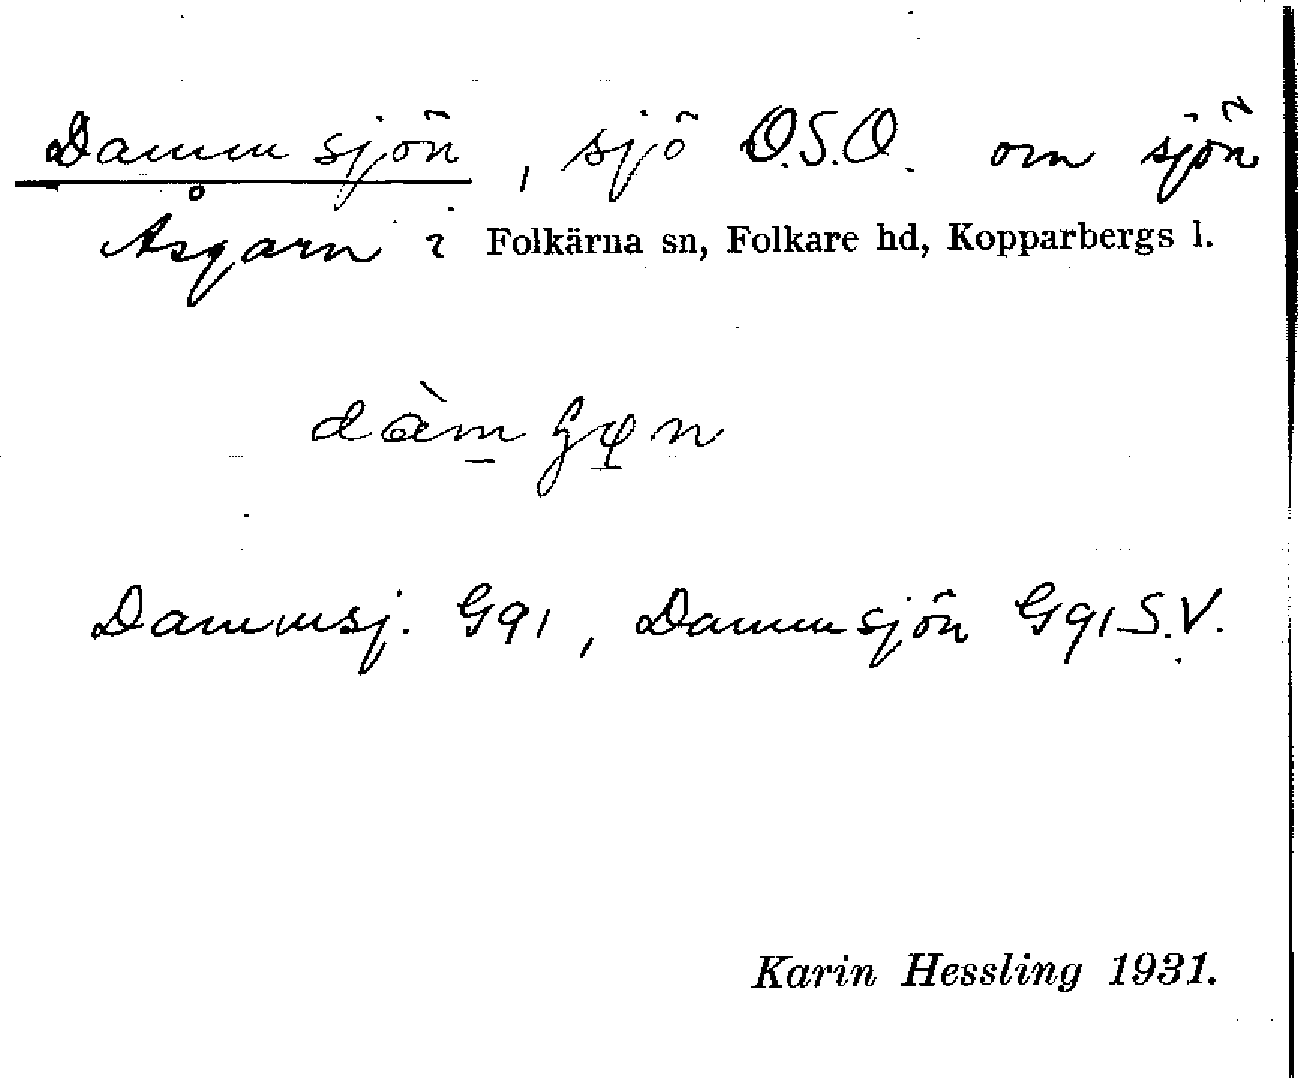 Dammsjön, sjö O.S.O. om sjön
Åsgarn i Folkärna sn, Folkare hd, Kopparbergs l.
Dammsj. G91, Dammsjön G91 S.V.
Karin Hessling 1931.